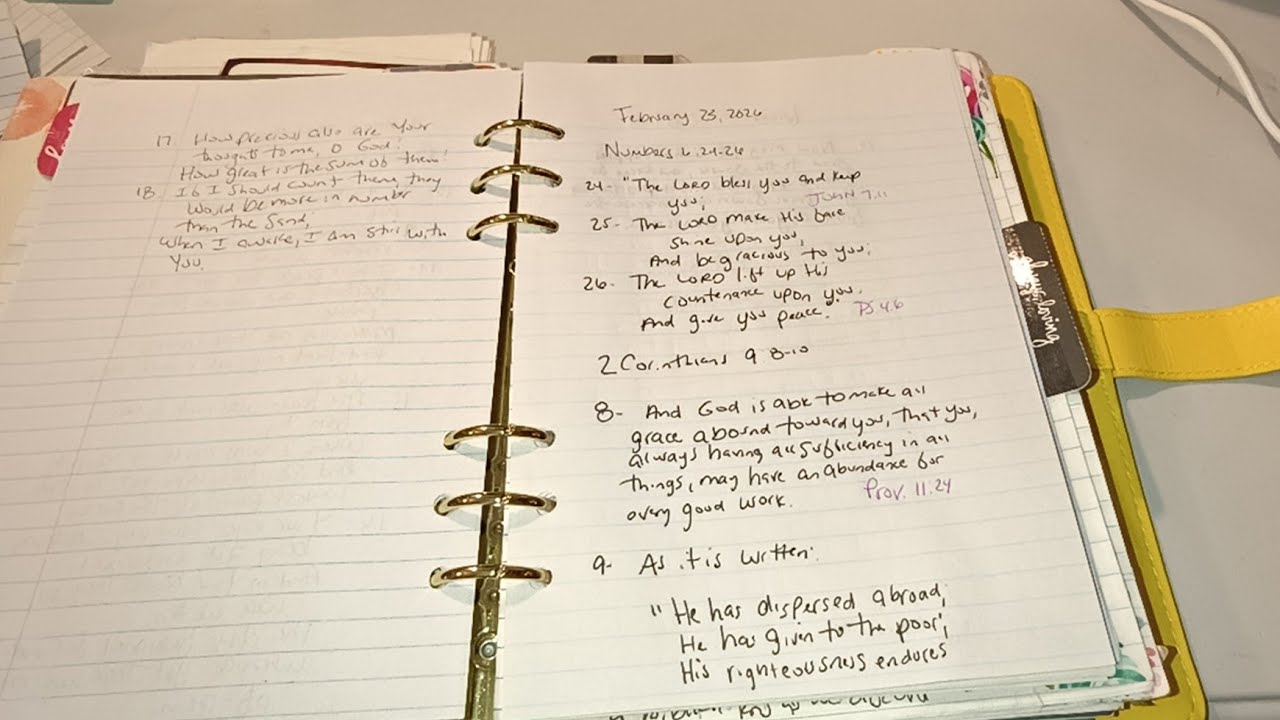 17 How precious also are Your
thoughts to me, O God!
How great is the sum of them!
18. If I should count them, they
would be more in number
than the sand;
When I awake, I am still with
You.
February 23, 2026
Numbers 6.24-26
24- "The LORD bless you and keep
you; John 7.11
25- The LORD make His face
shine upon you,
And be gracious to you;
26- The LORD lift up His
countenance upon you,
And give you peace." Ps 4.6
2 Corinthians 9 8-10
8- And God is able to make all
grace abound toward you, that you,
always having all sufficiency in all
things, may have an abundance for
every good work. Prov. 11.24
9- As it is written:
"He has dispersed abroad;
He has given to the poor;
His righteousness endures
loving